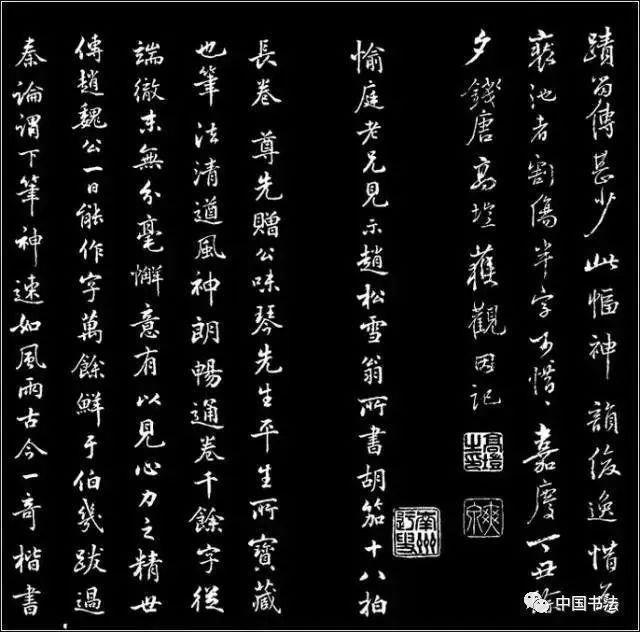 蹟留傳甚少此幅神韻俊逸惜為
裝池者割傷半字可惜﹅嘉慶丁丑除
夕錢唐高塏獲觀因記
高塏之印
爽泉
愉庭老兄見示趙松雪翁所書胡笳十八拍
長卷尊先贈公味琴先生平生所寶藏
也筆法清遒風神朗暢通卷千餘字從
端徹末無分毫懈意有以見心力之精世
傳趙魏公一日能作字萬餘鮮于伯幾跋過
秦論謂下筆神速如風雨古今一奇楷書
中国书法